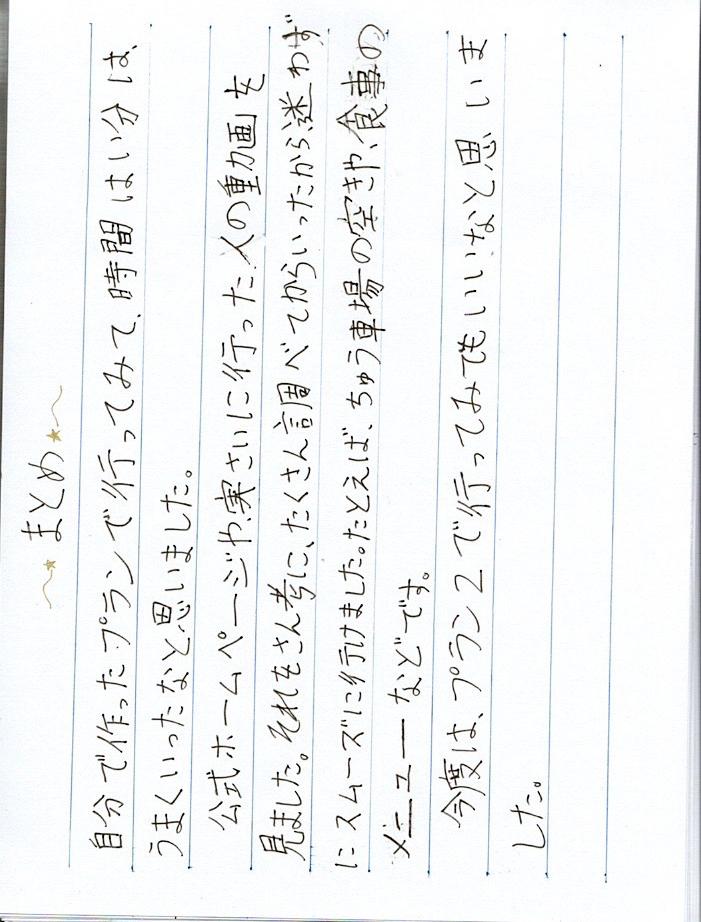 ～★まとめ★～
自分で作ったプランで行ってみて、時間はい分は、
うまくいったなと思いました。
公式ホームページや、実さいに行った人の動画を
見ました。それをさん考に、たくさん調べてからいったから迷わず
にスムーズに行けました。たとえば、ちゅう車場の空きや、食事の
メニューなどです。
今度は、プラン2で行ってみてもいいなと思いま
した。